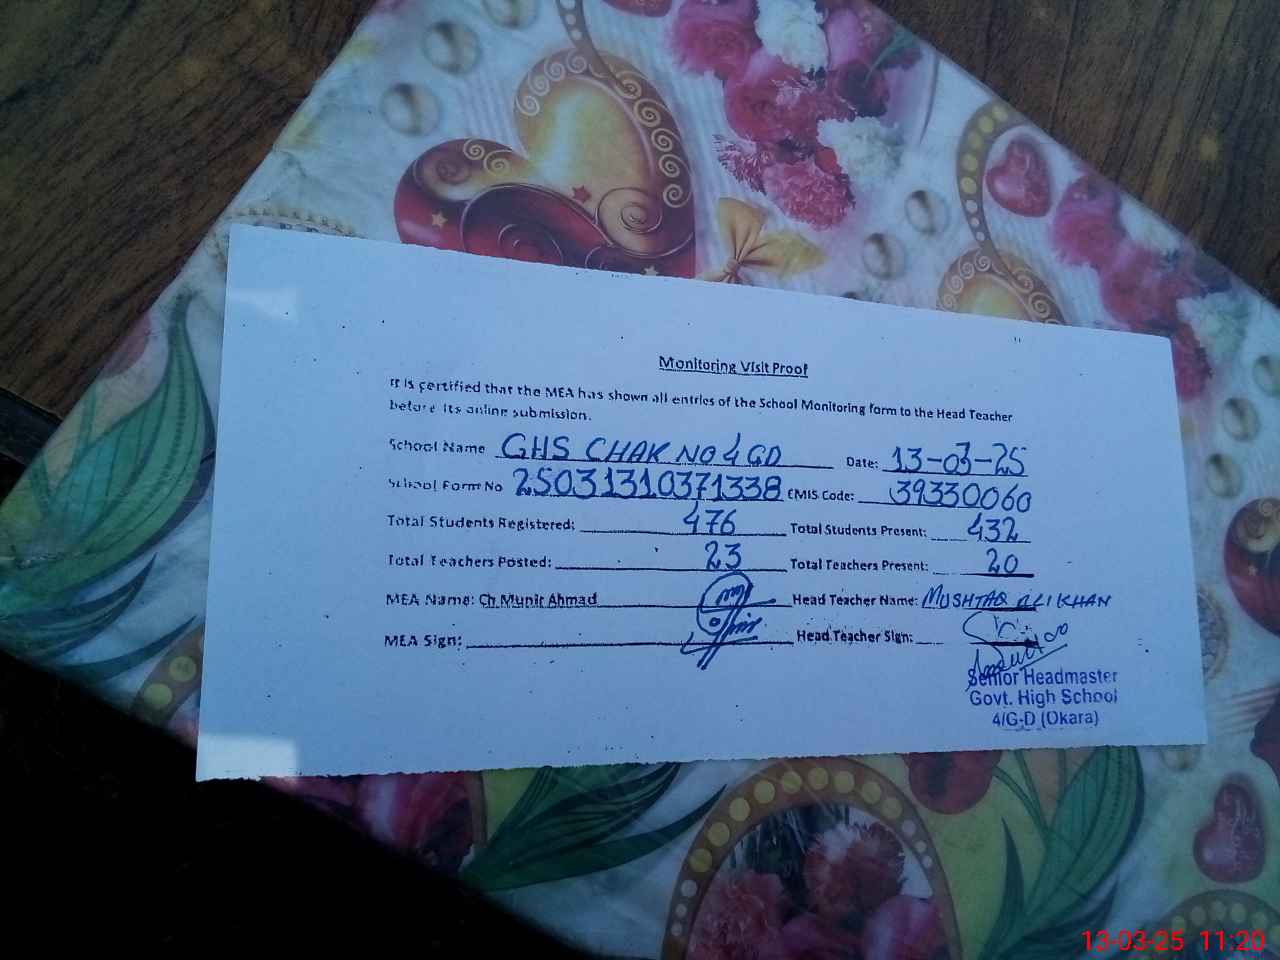 Monitoring Visit Proof
It is certified that the MEA has shown all entries of the School Monitoring form to the Head Teacher
before its online submission.
School Name GHS CHAK NO 4 GD Date: 13-03-25
School Form No 25031310371338 EMIS Code: 39330060
Total Students Registered: 476 Total Students Present: 432
Total Teachers Posted: 23 Total Teachers Present: 20
MEA Name: Ch.Munir Ahmad Head Teacher Name: MUSHTAQ ALI KHAN
MEA Sign: Head Teacher Sign:
Senior Headmaster
Govt. High School
4/G-D (Okara)
13-03-25 11:20